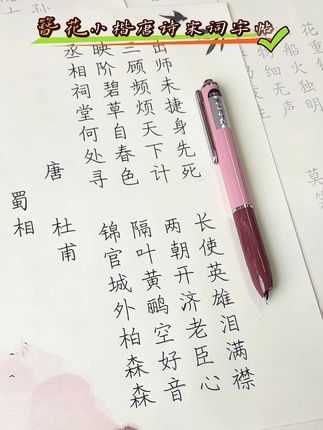 簪花小楷唐诗宋词字帖
蜀相
唐 杜甫
丞相祠堂何处寻
锦官城外柏森森
映阶碧草自春色
隔叶黄鹂空好音
三顾频烦天下计
两朝开济老臣心
出师未捷身先死
长使英雄泪满襟
物细无声
船火独
花重